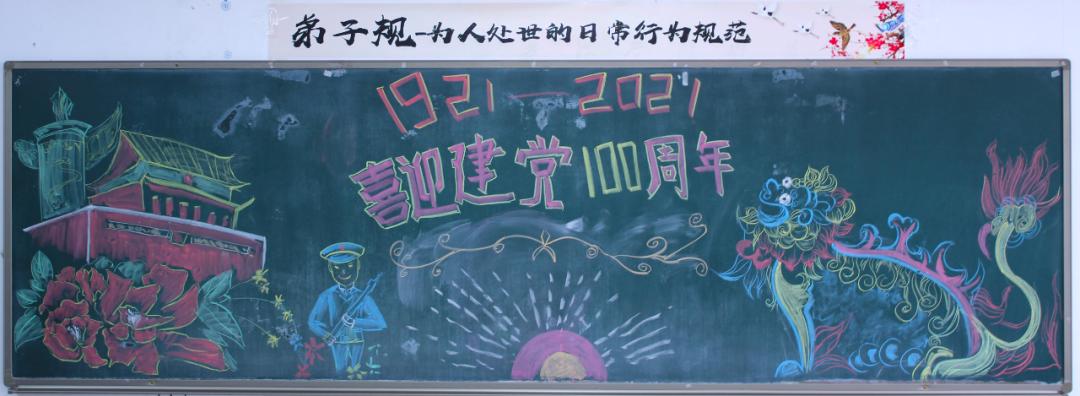 弟子规-为人处世的日常行为规范
1921—2021
喜迎建党100周年